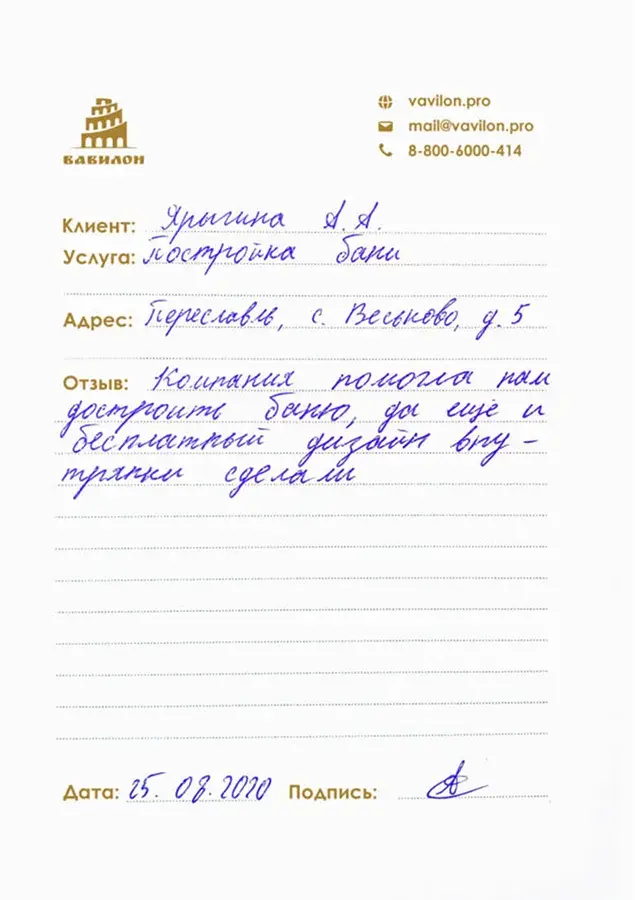 ВАВИЛОН
vavilon.pro
mail@vavilon.pro
8-800-6000-414
Клиент: Ярыгина А.А.
Услуга: Постройка бани
Адрес: Переславль, с. Веськово, д. 5
Отзыв: Компания помогла нам
достроить баню, да еще и
бесплатный дизайн вну-
трянки сделали
Дата: 25. 08. 2020 Подпись: